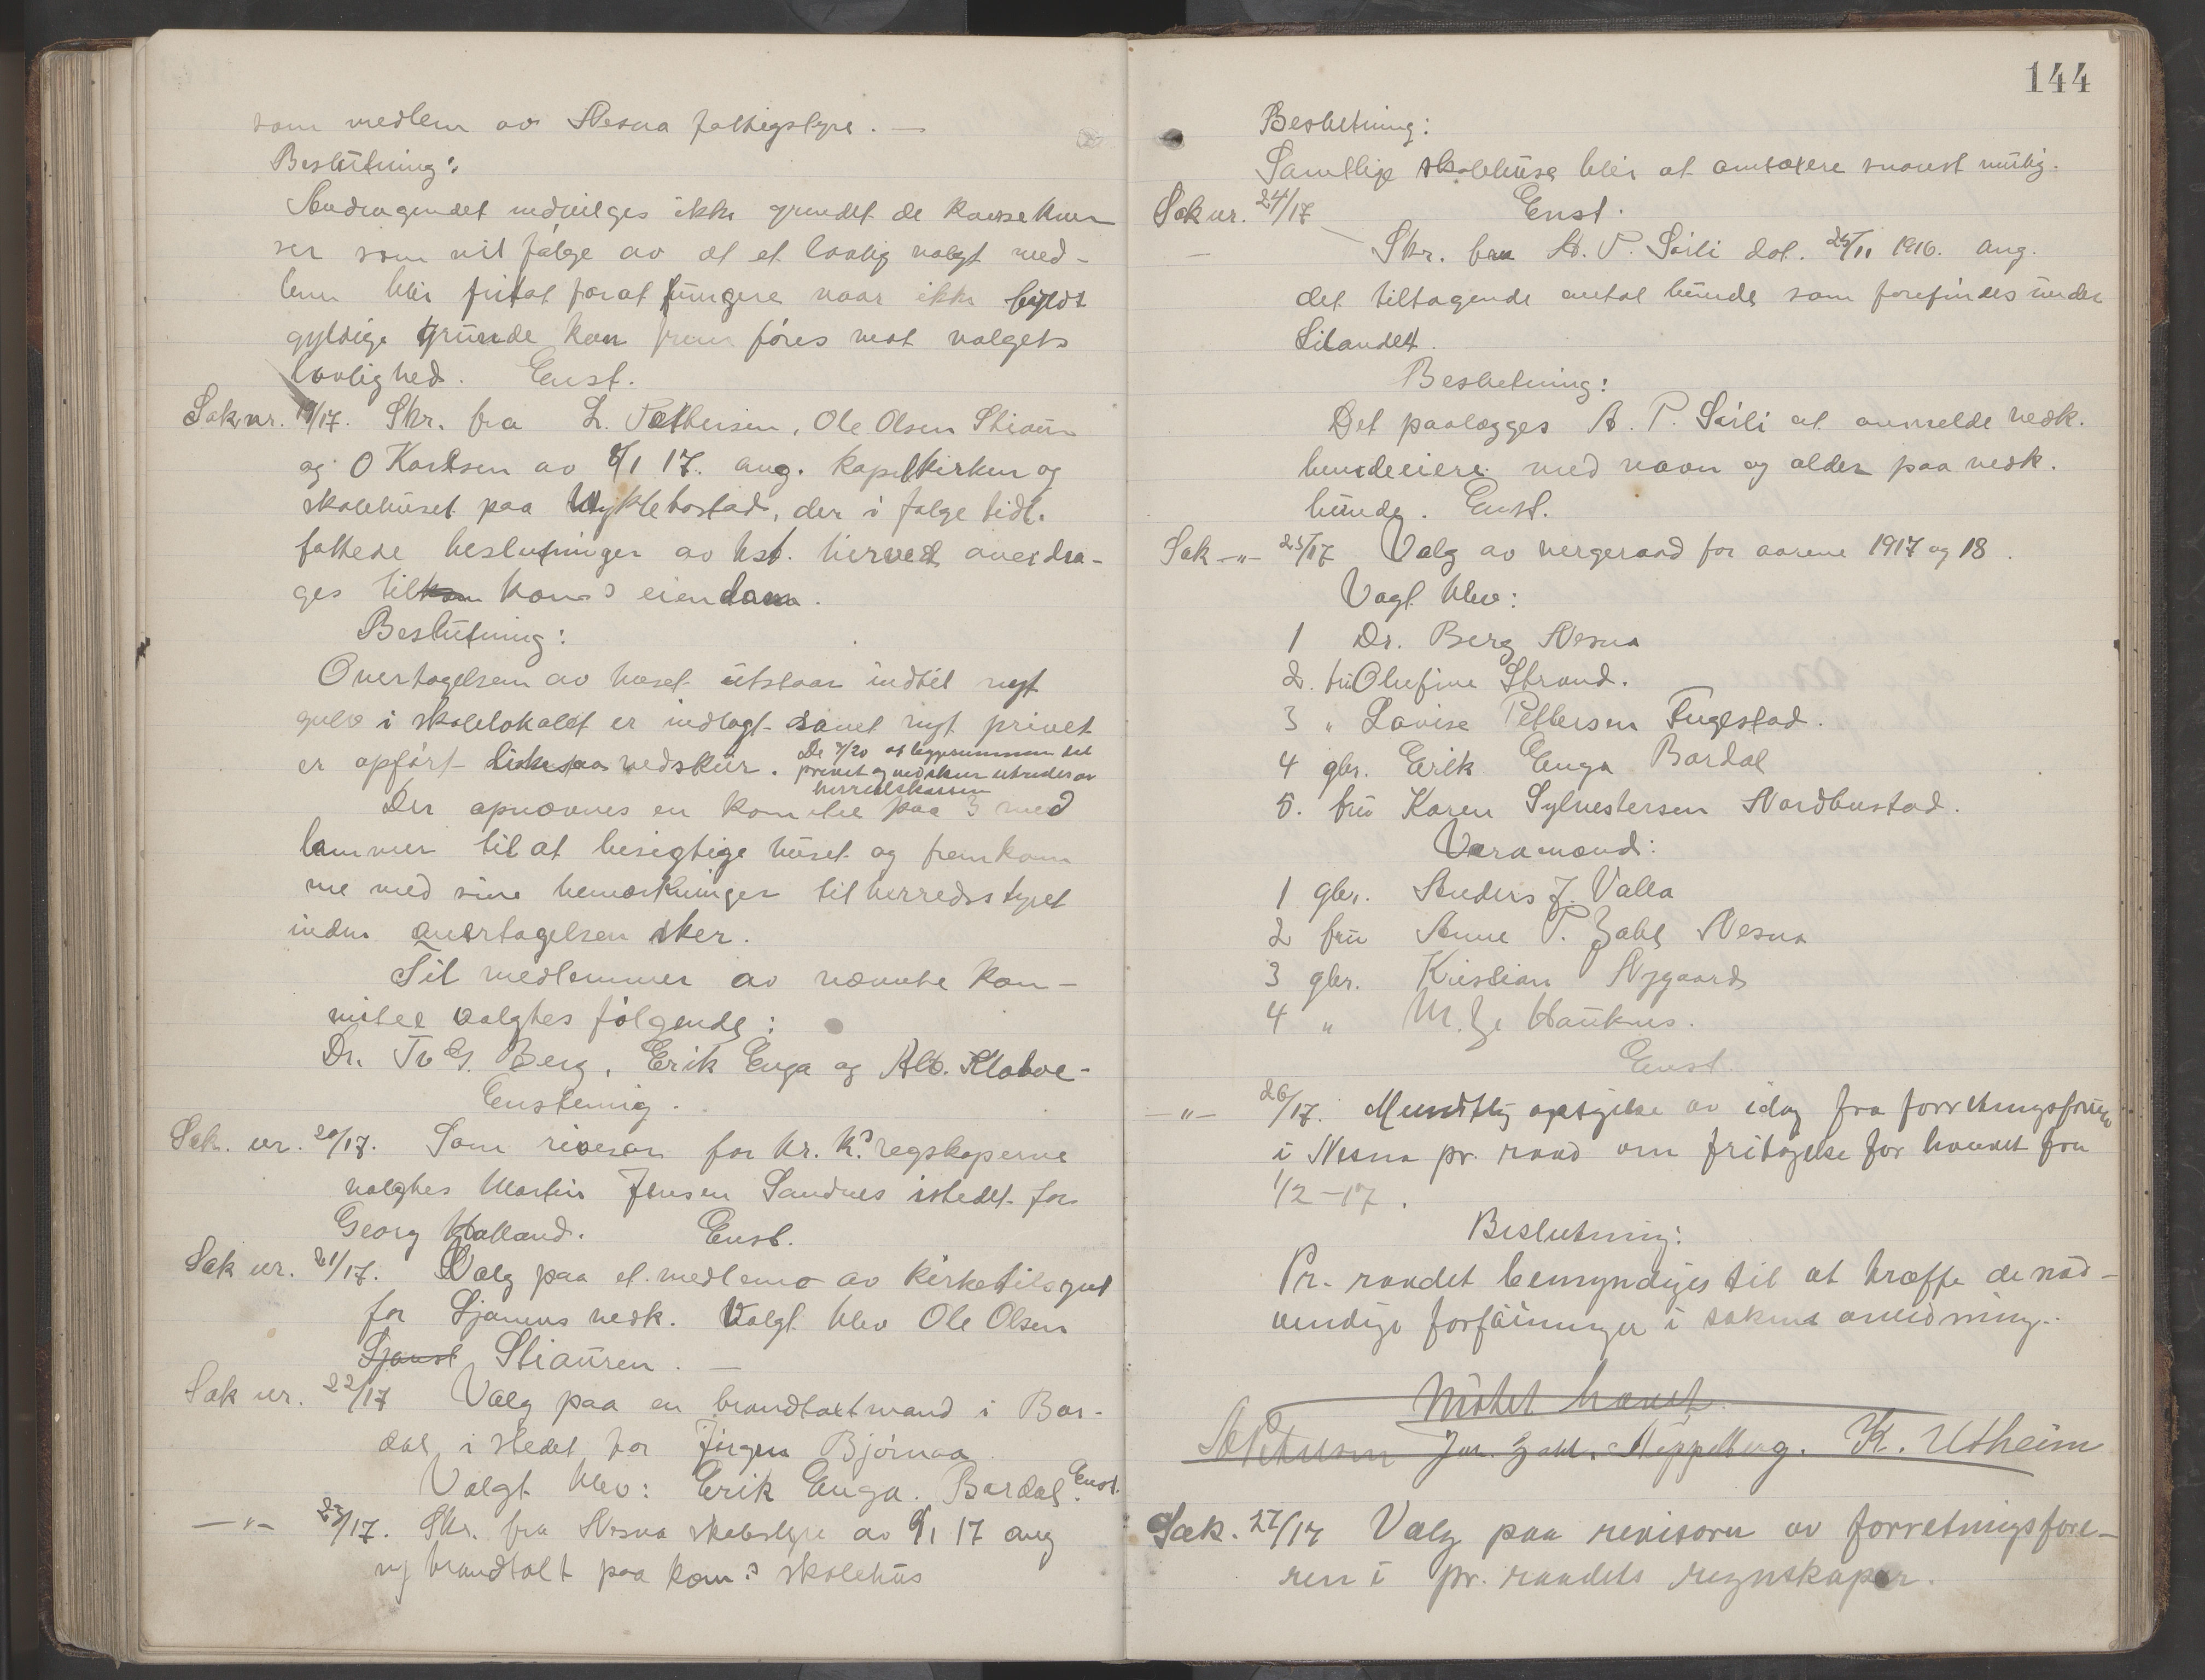 som medlem av Nesna fattigstyre. —
Beslutning:
Andragendet indvilges ikke grundet de konsekven
ser som vil følge av at et lovlig valgt med-
lem blir fritat for at fungere naar ikke
gyldige grunde kan frem føres mot valgets
lovlighed. Enst.
Sak nr. 19/17. Skr. fra L. Pettersen, Ole Olsen Stiauren
og O Karlsen av 8/1 17. ang. kapelkirken og
skolehuset paa Myklebostad, der i følge tidl.
fattede beslutninger av hst. herved overdra-
ges til kom kom.s eiendom.
Beslutning:
Overtagelsen av huset utstaar indtil nyt
gulv i skolelokalet er indlagt samt nyt privet
er opført likesaa vedskur. De 7/20 av byggesummen det
privet og vedskur utredes av
herredskassen
Der opnævnes en komite paa 3 med
lemmer til at besigtige huset og fremkom
me med sine bemerkninger til herredsstyret
inden overtagelsen sker.
Til medlemmer av nævnte kom-
mitee valgtes følgende:
Dr. Tv G. Berg, Erik Enga og Alb. Klaboe-
Enstemig.
Sak. nr. 20/17. Som revisor for hr. k.s regskaperne
valgtes Martin Jensen Sandnes istedet for
Georg Holland. Enst.
Sak nr. 21/17. Valg paa et medlem av kirketilsynet
for Sjonens vedk. Valgt blev Ole Olsen
Sjonst Stiauren. —
Sak nr. 22/17 Valg paa en brandtakstmand i Bar-
dal i stedet for Jørgen Bjørnaa
Valgt blev: Erik Enga. Bardal. Enst.
—"— 23/17. Skr. fra Nesna skolestyre av 9/1 17 ang
ny brandtakst paa kom.s skolehus
144
Beslutning:
Samtlige skolehuse blir at omtaxere snarest mulig.
Enst.
Sak nr. 24/17
— Skr. fra A. P. Sørli dat. 25/11 1916. ang.
det tiltagende antal hunde som forefindes under
Litlandet.
Beslutning:
Det paalægges A. P. Sørli at anmelde vedk.
hundeeiere med navn og alder paa vedk.
hunde. Enst.
Sak —"— 25/17 Valg av vergeraad for aarene 1917 og 18.
Valgt blev:
1 Dr. Berg Nesna
2. fru Olufine Strand.
3 " Lovise Pettersen Fugestad.
4 gbr. Erik Enga Bardal
5. fru Karen Sylvestersen Nordbustad.
Varamænd:
1 gbr. Anders J. Valla
2 fru Anne P. Zahl Nesna
3 gbr. Kristian Nygaard
4 " M. Hauknes.
Enst.
—"— 26/17. Mundtlig opsigelse av idag fra forretningsføreren
i Nesna pr. raad om fritagelse for hvervet fra
1/2 – 17.
Beslutning:
Pr. raadet bemyndiges til at træffe de nød-
vendige forføininger i sakens anledning.
Møtet hævet.
Petersen Joh. Zahl. Meppelberg. K. Utheim
Sak. 27/17 Valg paa revisorer av forretningsføre-
ren i pr. raadets regnskaper.